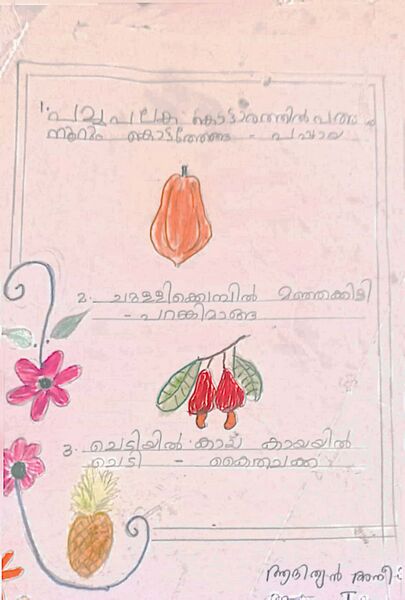 1. പച്ചപലക കൊട്ടാരത്തിൽ പത്തു
നൂറും കൊടത്തേങ്ങ - പപ്പായ
2. ചുള്ളിക്കൊമ്പിൽ മഞ്ഞക്കിളി
- പറങ്കിമാങ്ങ
3. ചെട്ടിയിൽ കായ കായയിൽ
ചെട്ടി - കൈതചക്ക
ആദിത്യൻ അനീ